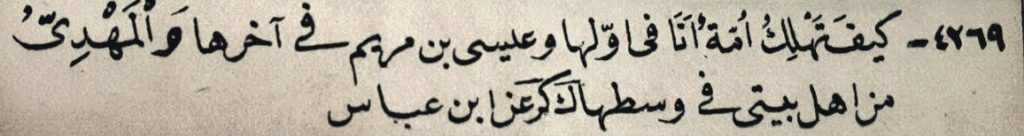 ٤٢٦٩- كيفَ تَهْلِكُ اُمّة ٌاَنَا فى اوّلها وعليسى بن مريم فے آخرها وَالْمَهْدِىّ ُ
من اهل بيتى فے وسطهاك كر عن ابن عباس